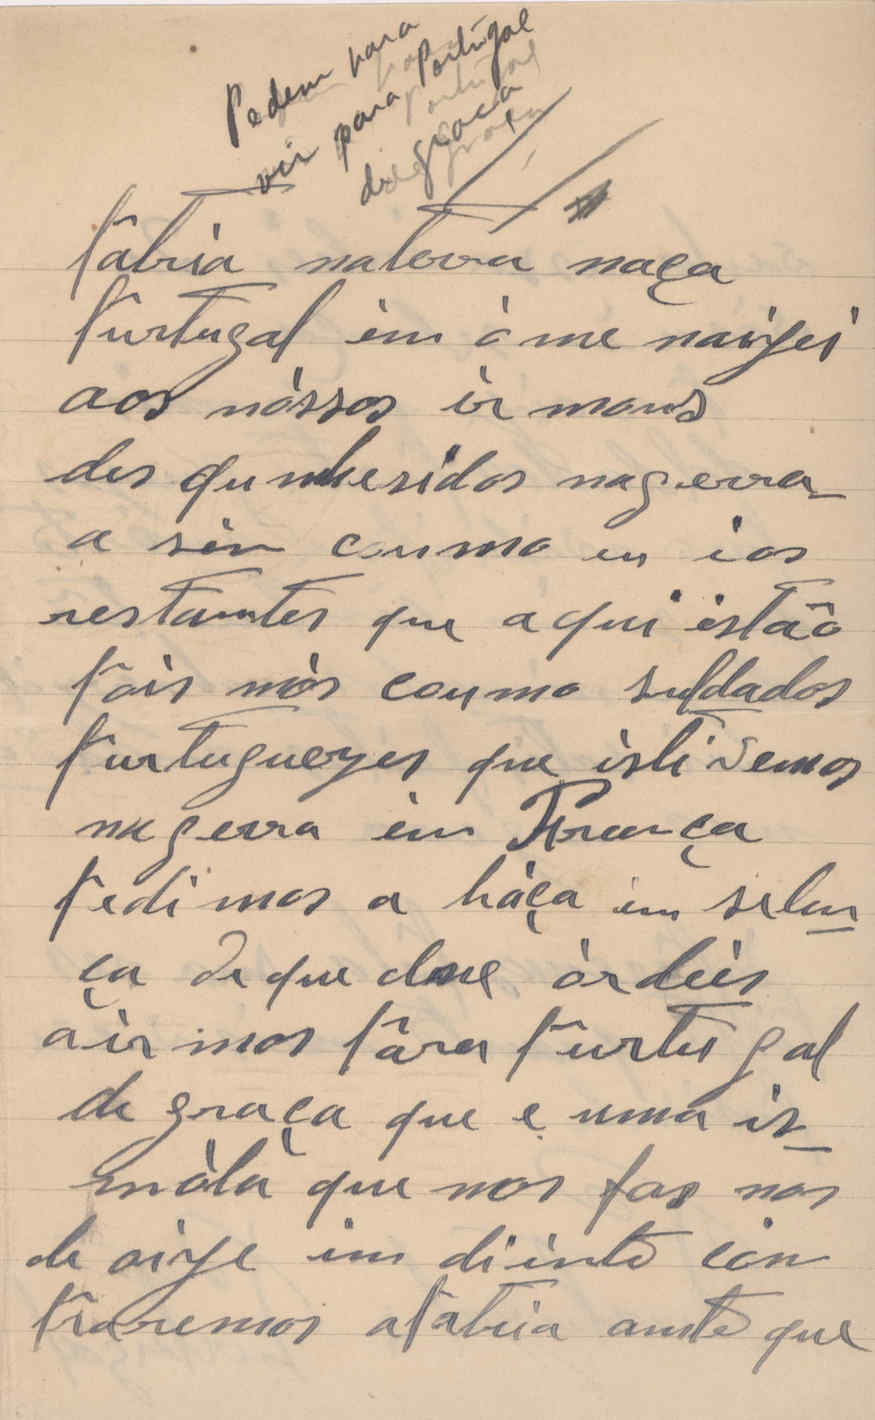 Pedem para
vir para Portugal
de graça
Pâtria naterra naça
Purtugal èm ó me naijei
aos nóssos ir mans
des qunhesidos nagerra
a sin coumo eu ios
restantes que aqui istão
Pois nós coumo suldados
Purtuguezes que istivemos
na gerra èm França
Pedimos a háça im selen
ça de que dme órdèis
àir mos Pâra Purtugal
de graça que e uma is
mòla que nos fas nos
de oije im diente
Praremos aPatria ante que